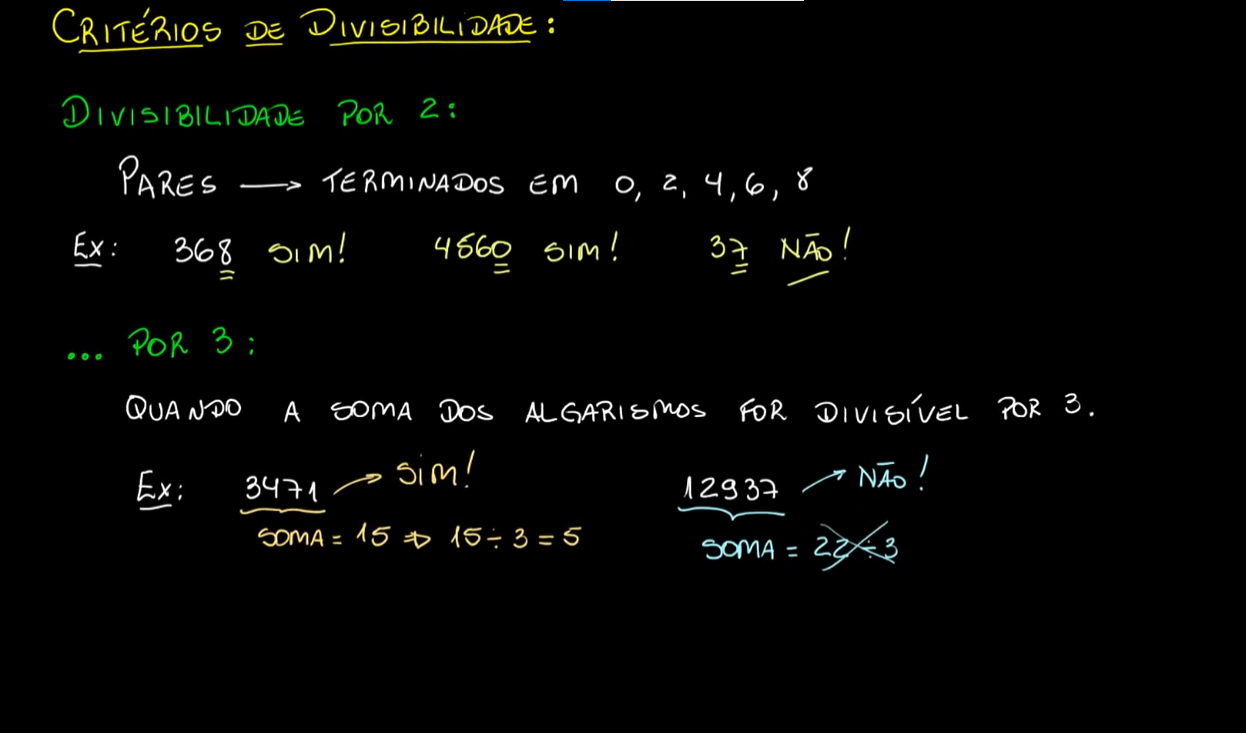 CRITÉRIOS DE DIVISIBILIDADE:
DIVISIBILIDADE POR 2:
PARES → TERMINADOS EM 0, 2, 4, 6, 8
EX: 368 SIM! 4560 SIM! 37 NÃO!
... POR 3:
QUANDO A SOMA DOS ALGARISMOS FOR DIVISÍVEL POR 3.
EX: 3471 → SIM! 12937 → NÃO!
SOMA = 15 ⇒ 15 ÷ 3 = 5 SOMA = 22 ÷ 3